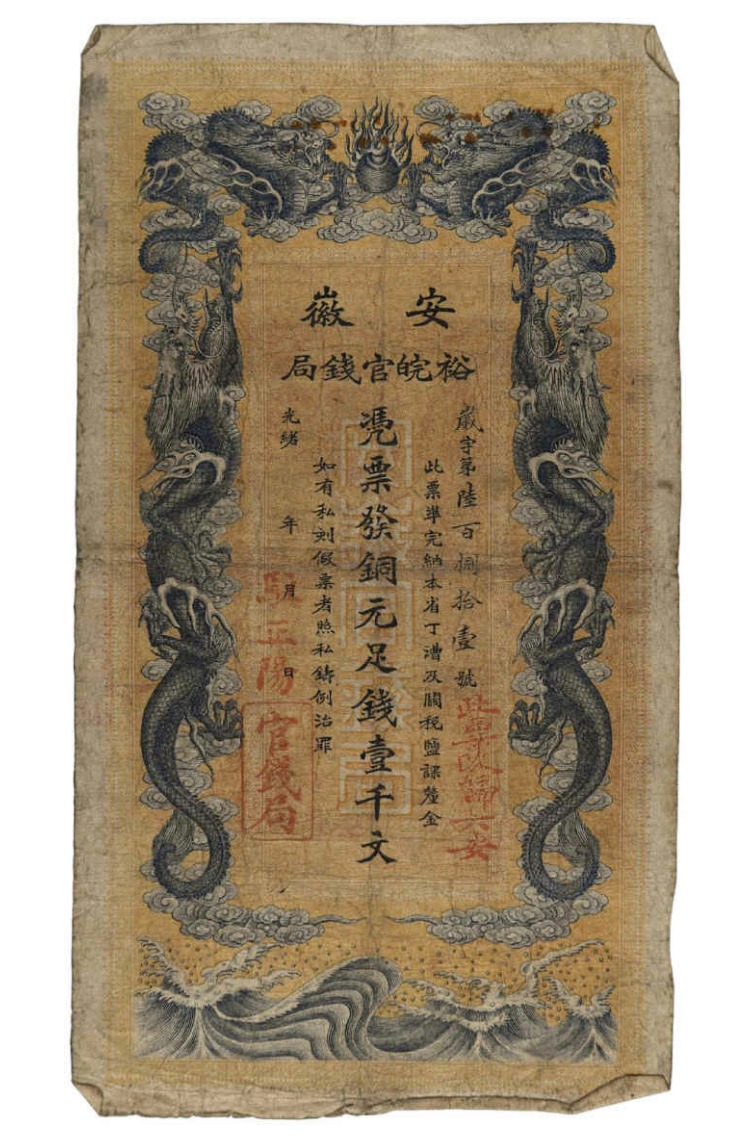 安徽
裕皖官錢局
歲字第陸百捌拾壹號
此票準完納本省丁漕及關稅鹽課釐金
憑票發銅元足錢壹千文
如有私刻假票者照私鑄例治罪
光緒 年 月 日
正陽
官錢局
此票改歸六安